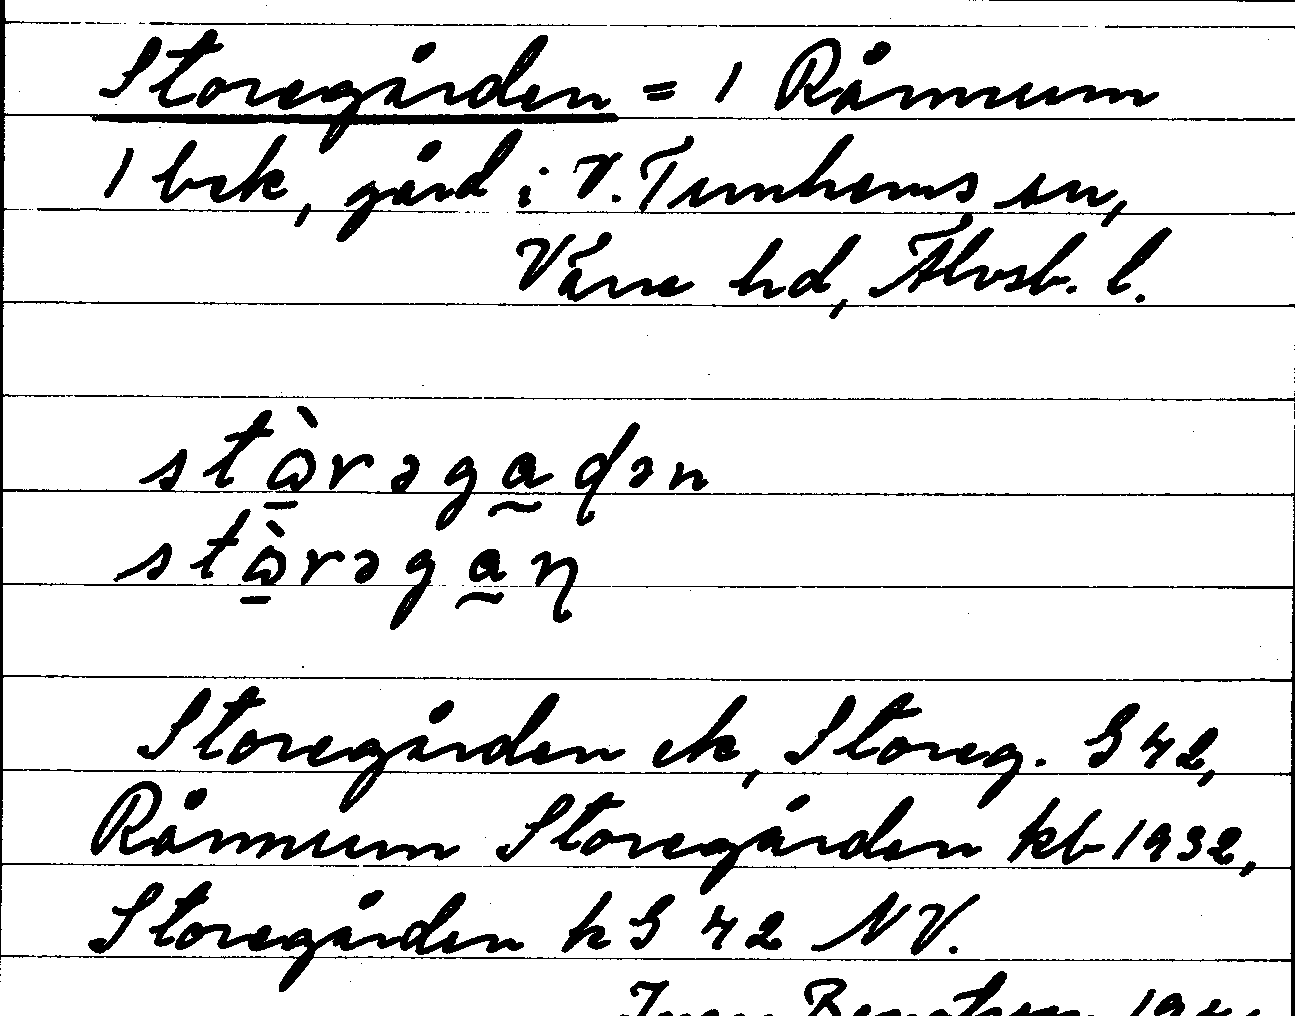 Storegården = 1 Rånnum
1 brk, gård i V. Tunhems sn,
Väne hd, Älvsb. l.
stɷ̀rəgadən
stɷ̀rəgaɳ
Storegården ek, Storeg. G 42,
Rånnum Storegården kb 1932,
Storegården kG 42 NV.
Bengtsson